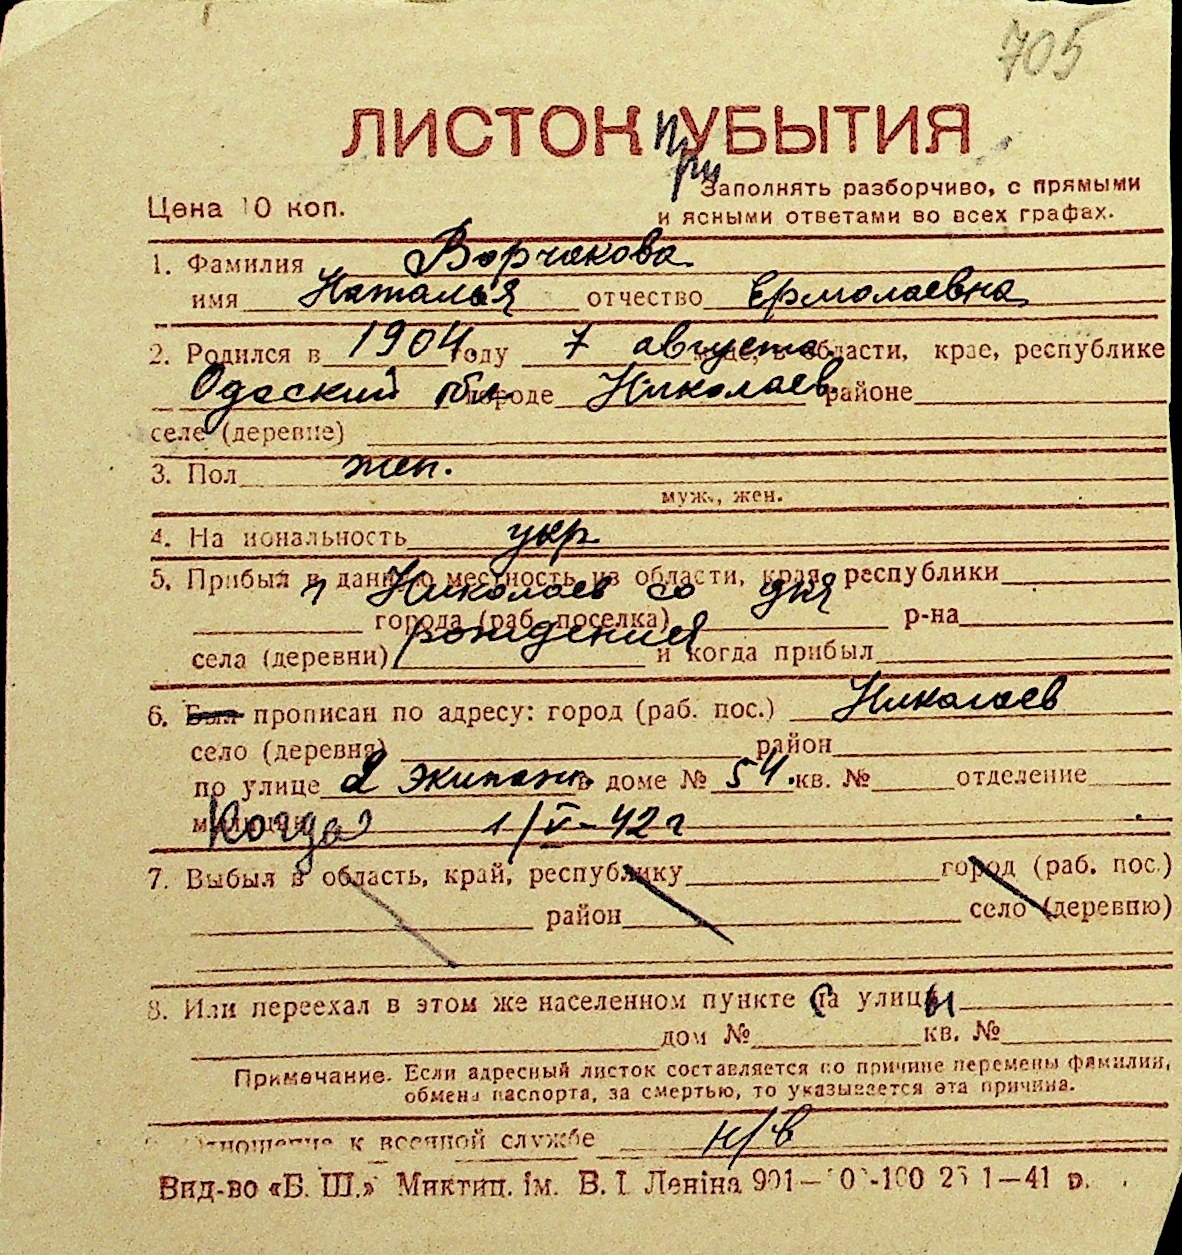 705
ЛИСТОК при УБЫТИЯ
Цена 10 коп.
Заполнять разборчиво, с прямыми
и ясными ответами во всех графах.
1. Фамилия Ворчакова
имя Наталья отчество Ермолаевна
2. Родился в 1904 году 7 августа м-це, в области, крае, республике
Одеский обл. городе Николаев. районе
селе (деревне)
3. Пол жен.
муж., жен.
4. На иональность укр
5. Прибыл в данную местность из области, края, республики
г Николаев со дня
города (раб. поселка) р-на
рождения
села (деревни) и когда прибыл
6. Был прописан по адресу: город (раб. пос.) Николаев
село (деревня) район
по улице 2 Экипажн в доме № 54. кв. № отделение
милиции Когда 1/V-42 г
7. Выбыл в область, край, республику город (раб. пос.)
район село (деревню)
8. Или переехал в этом же населенном пункте са улицы
дом № кв. №
Примечание. Если адресный листок составляется по причине перемены фамилии,
обмена паспорта, за смертью, то указывается эта причина.
Отношение к военной службе н/в
Вид-во «Б. Ш.» Миктип. ім. В. І. Леніна 901— 1—41 р.